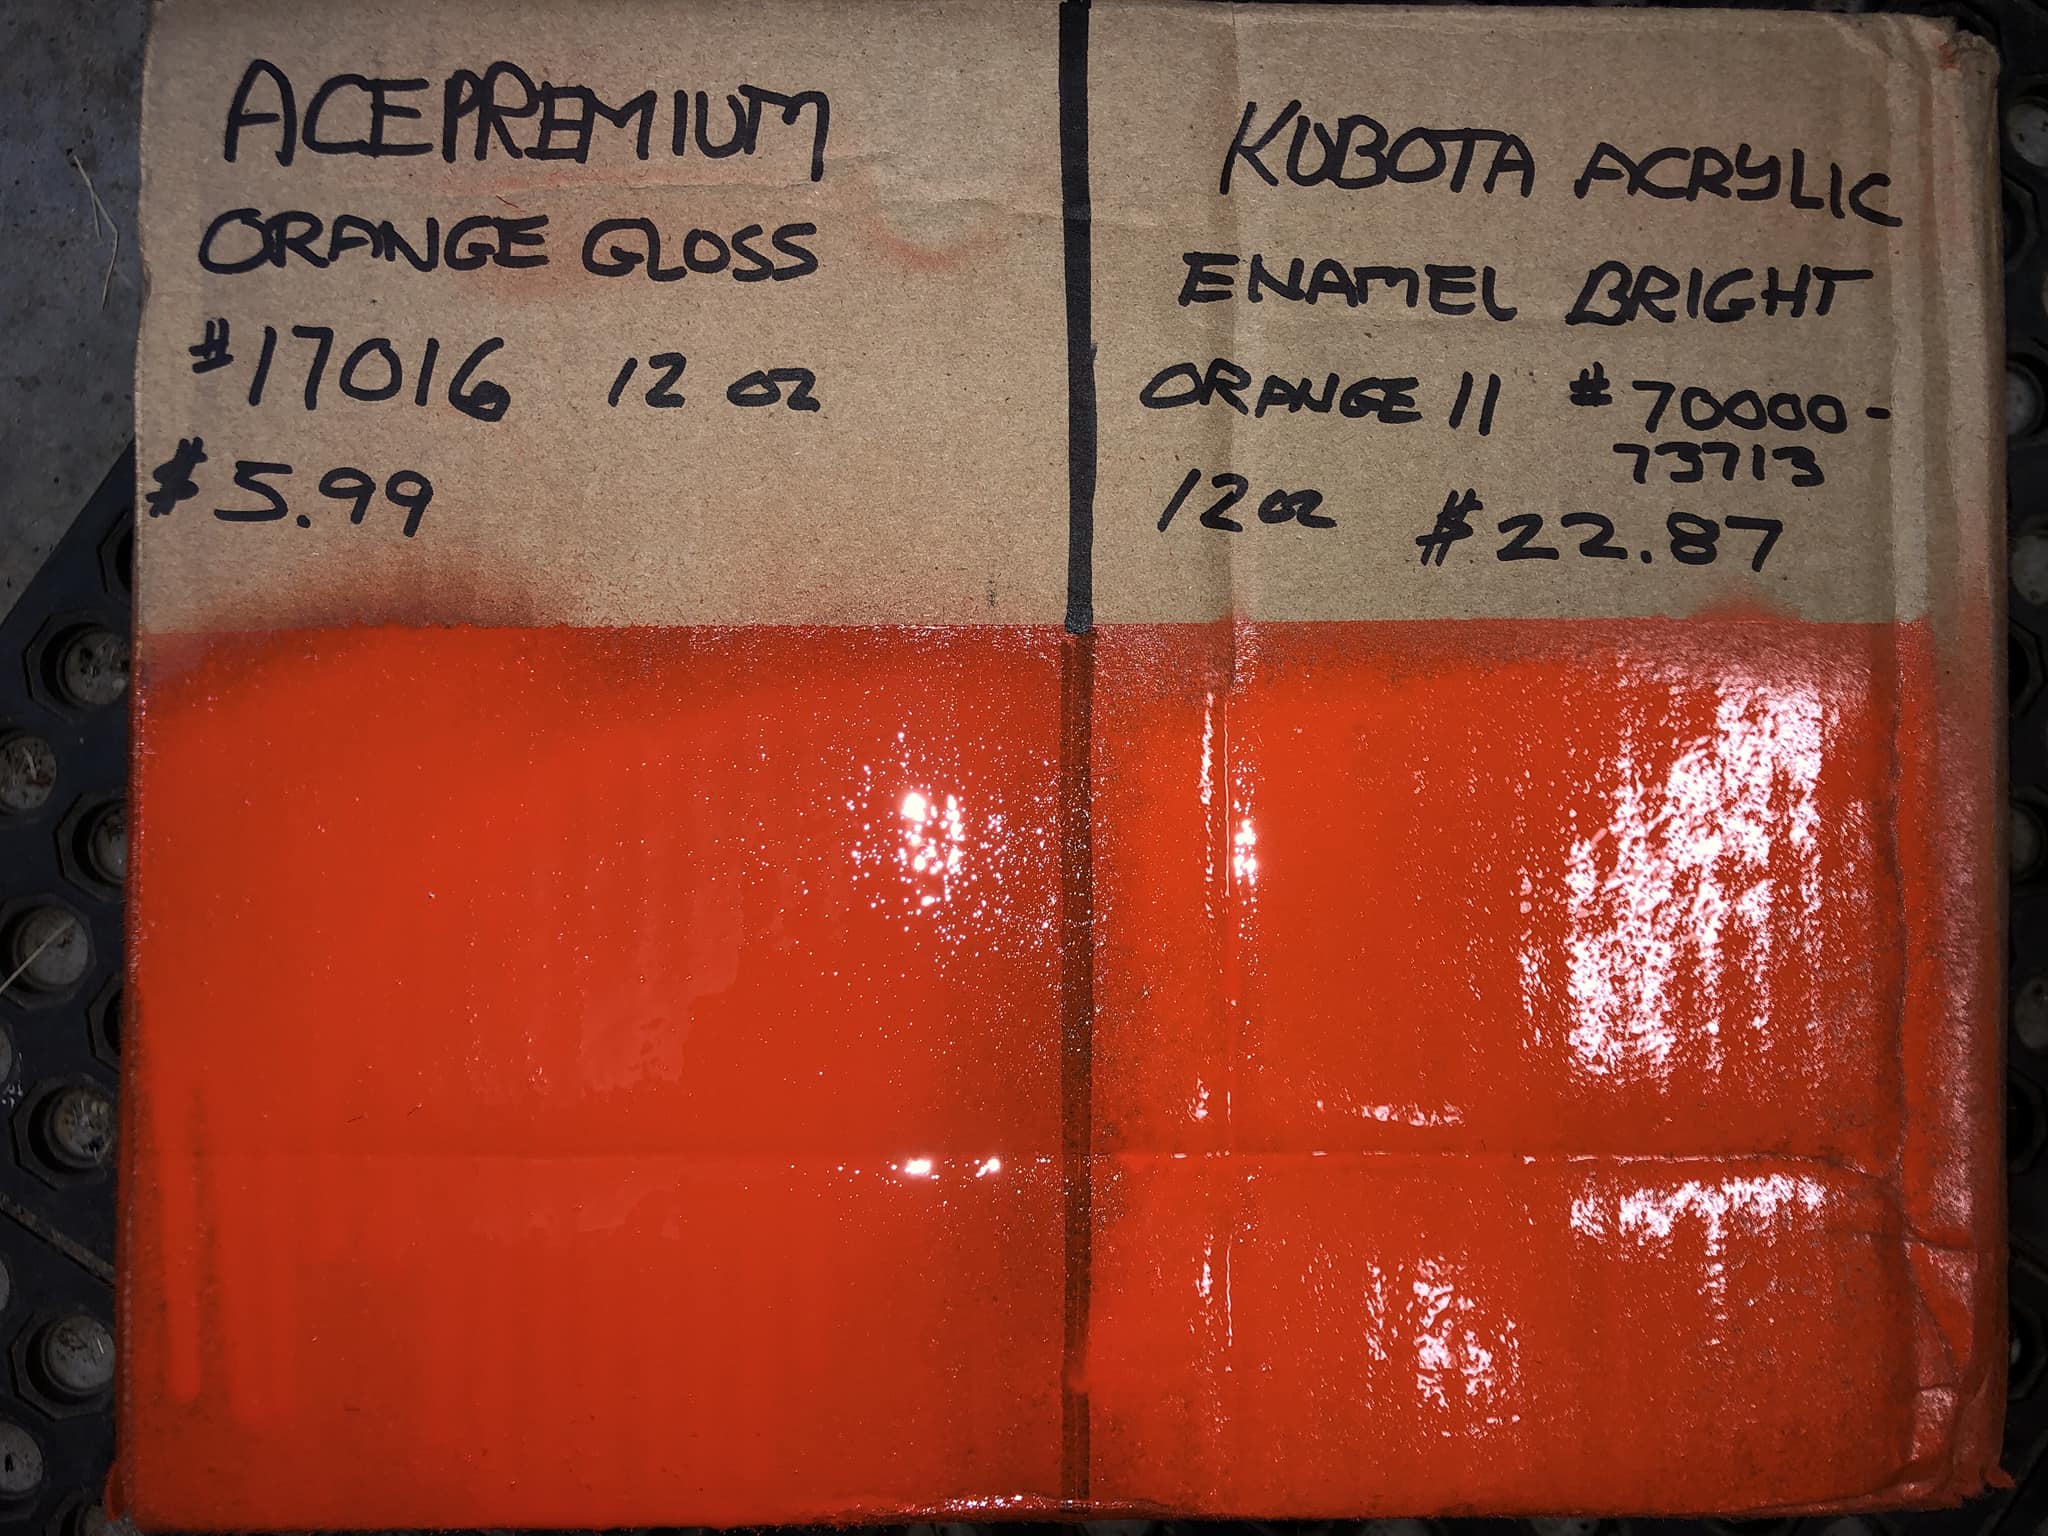 ACE PREMIUM
ORANGE GLOSS
#17016 12 oz
$5.99
KUBOTA ACRYLIC
ENAMEL BRIGHT
ORANGE II #70000-
73713
12 oz $22.87